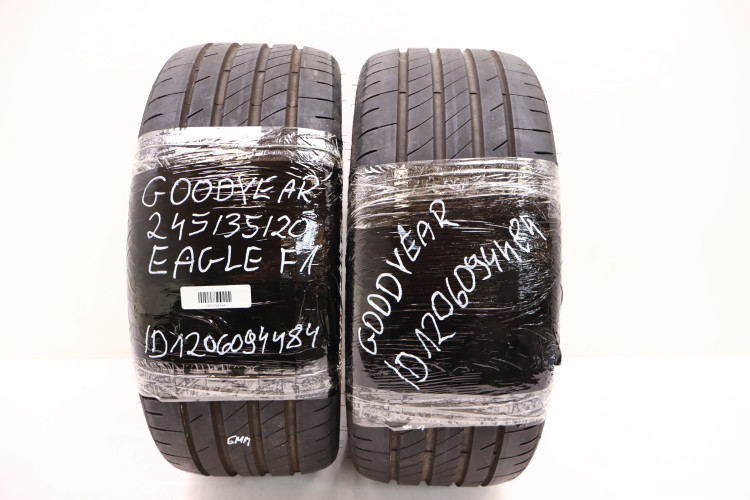 GOODYEAR
245135120
EAGLE F1
ID1206094484
5MM
GOODYEAR
ID1206094484